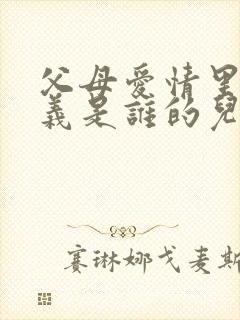 父母愛情里
義是誰的兒
賽琳娜戈麦斯